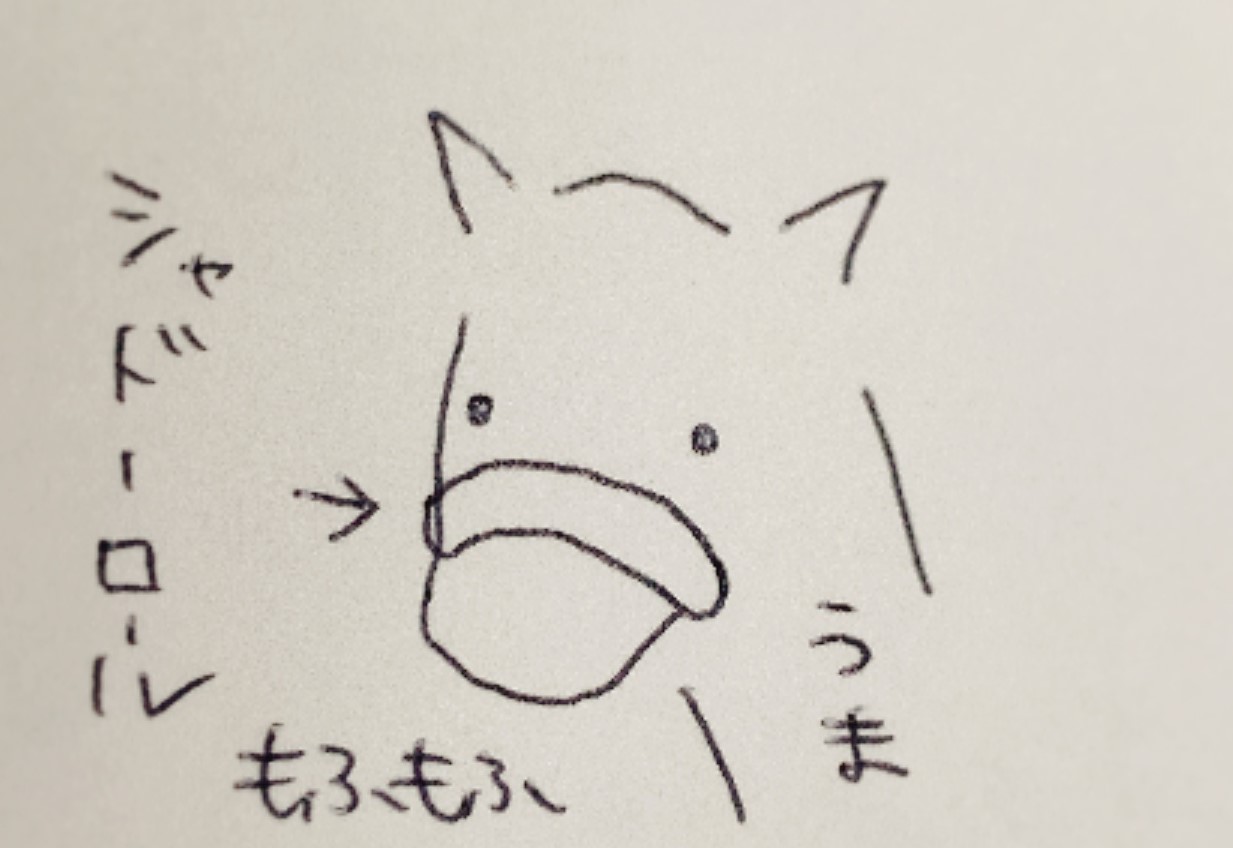 シャドーロール
もふもふ
うま